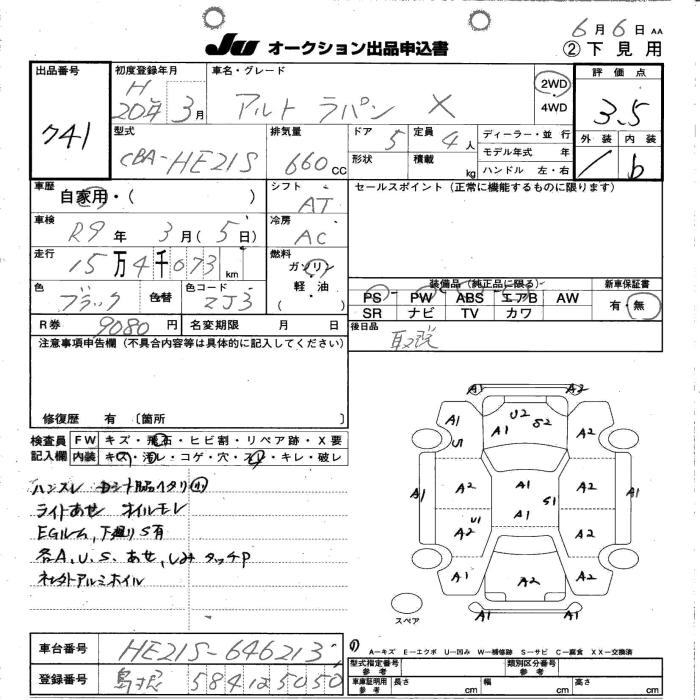 6月6日 AA
Ju オークション出品申込書
②下見用
出品番号
741
初度登録年月
H
20年3月
車名・グレード
アルト ラパン X
2WD
4WD
評価点
3.5
外装 内装
/ b
型式
CBA-HE21S
排気量
660cc
ドア 5
定員 4人
形状
積載 kg
ディーラー・並行
モデル年式 年
ハンドル 左・右
車歴
自家用・( )
シフト
AT
セールスポイント(正常に機能するものに限ります)
車検
R9年3月(5日)
冷房
AC
走行
15万4千073km
燃料
ガソリン
軽・油
( )
色
ブラック
色替
色コード
ZJ3
装備品(純正品に限る)
PS PW ABS エアB AW
SR ナビ TV カワ
新車保証書
有・無
R券 9080円
名変期限 月 日
後日品
取説
注意事項申告欄(不具合内容等は具体的に記入してください)
修復歴 有 〔箇所 〕
検査員
記入欄
FW キズ・飛石・ヒビ割・リペア跡・X要
内装 キズ・汚レ・コゲ・穴・スレ・キレ・破レ
ハンスレ
ライトあせ オイルモレ
EGルム,下廻りS有
各A,U,S,あせ,しみ タッチP
社外アルミホイル
A1 A2
A1 U2 S2 A2
U1 A1
A1 A2 A1 A2 A1
S1
A1
U1 A2 A2
A1 A2 A2
A1 A2
スペア
A−キズ E−エクボ U−凹み W−補修跡 S−サビ C−腐食 XX−交換済
車台番号
HE21S-646213
登録番号
584 い 5050
型式指定番号
参考
類別区分番号
参考
車庫証明用
参考
長さ cm
幅 cm
高さ cm